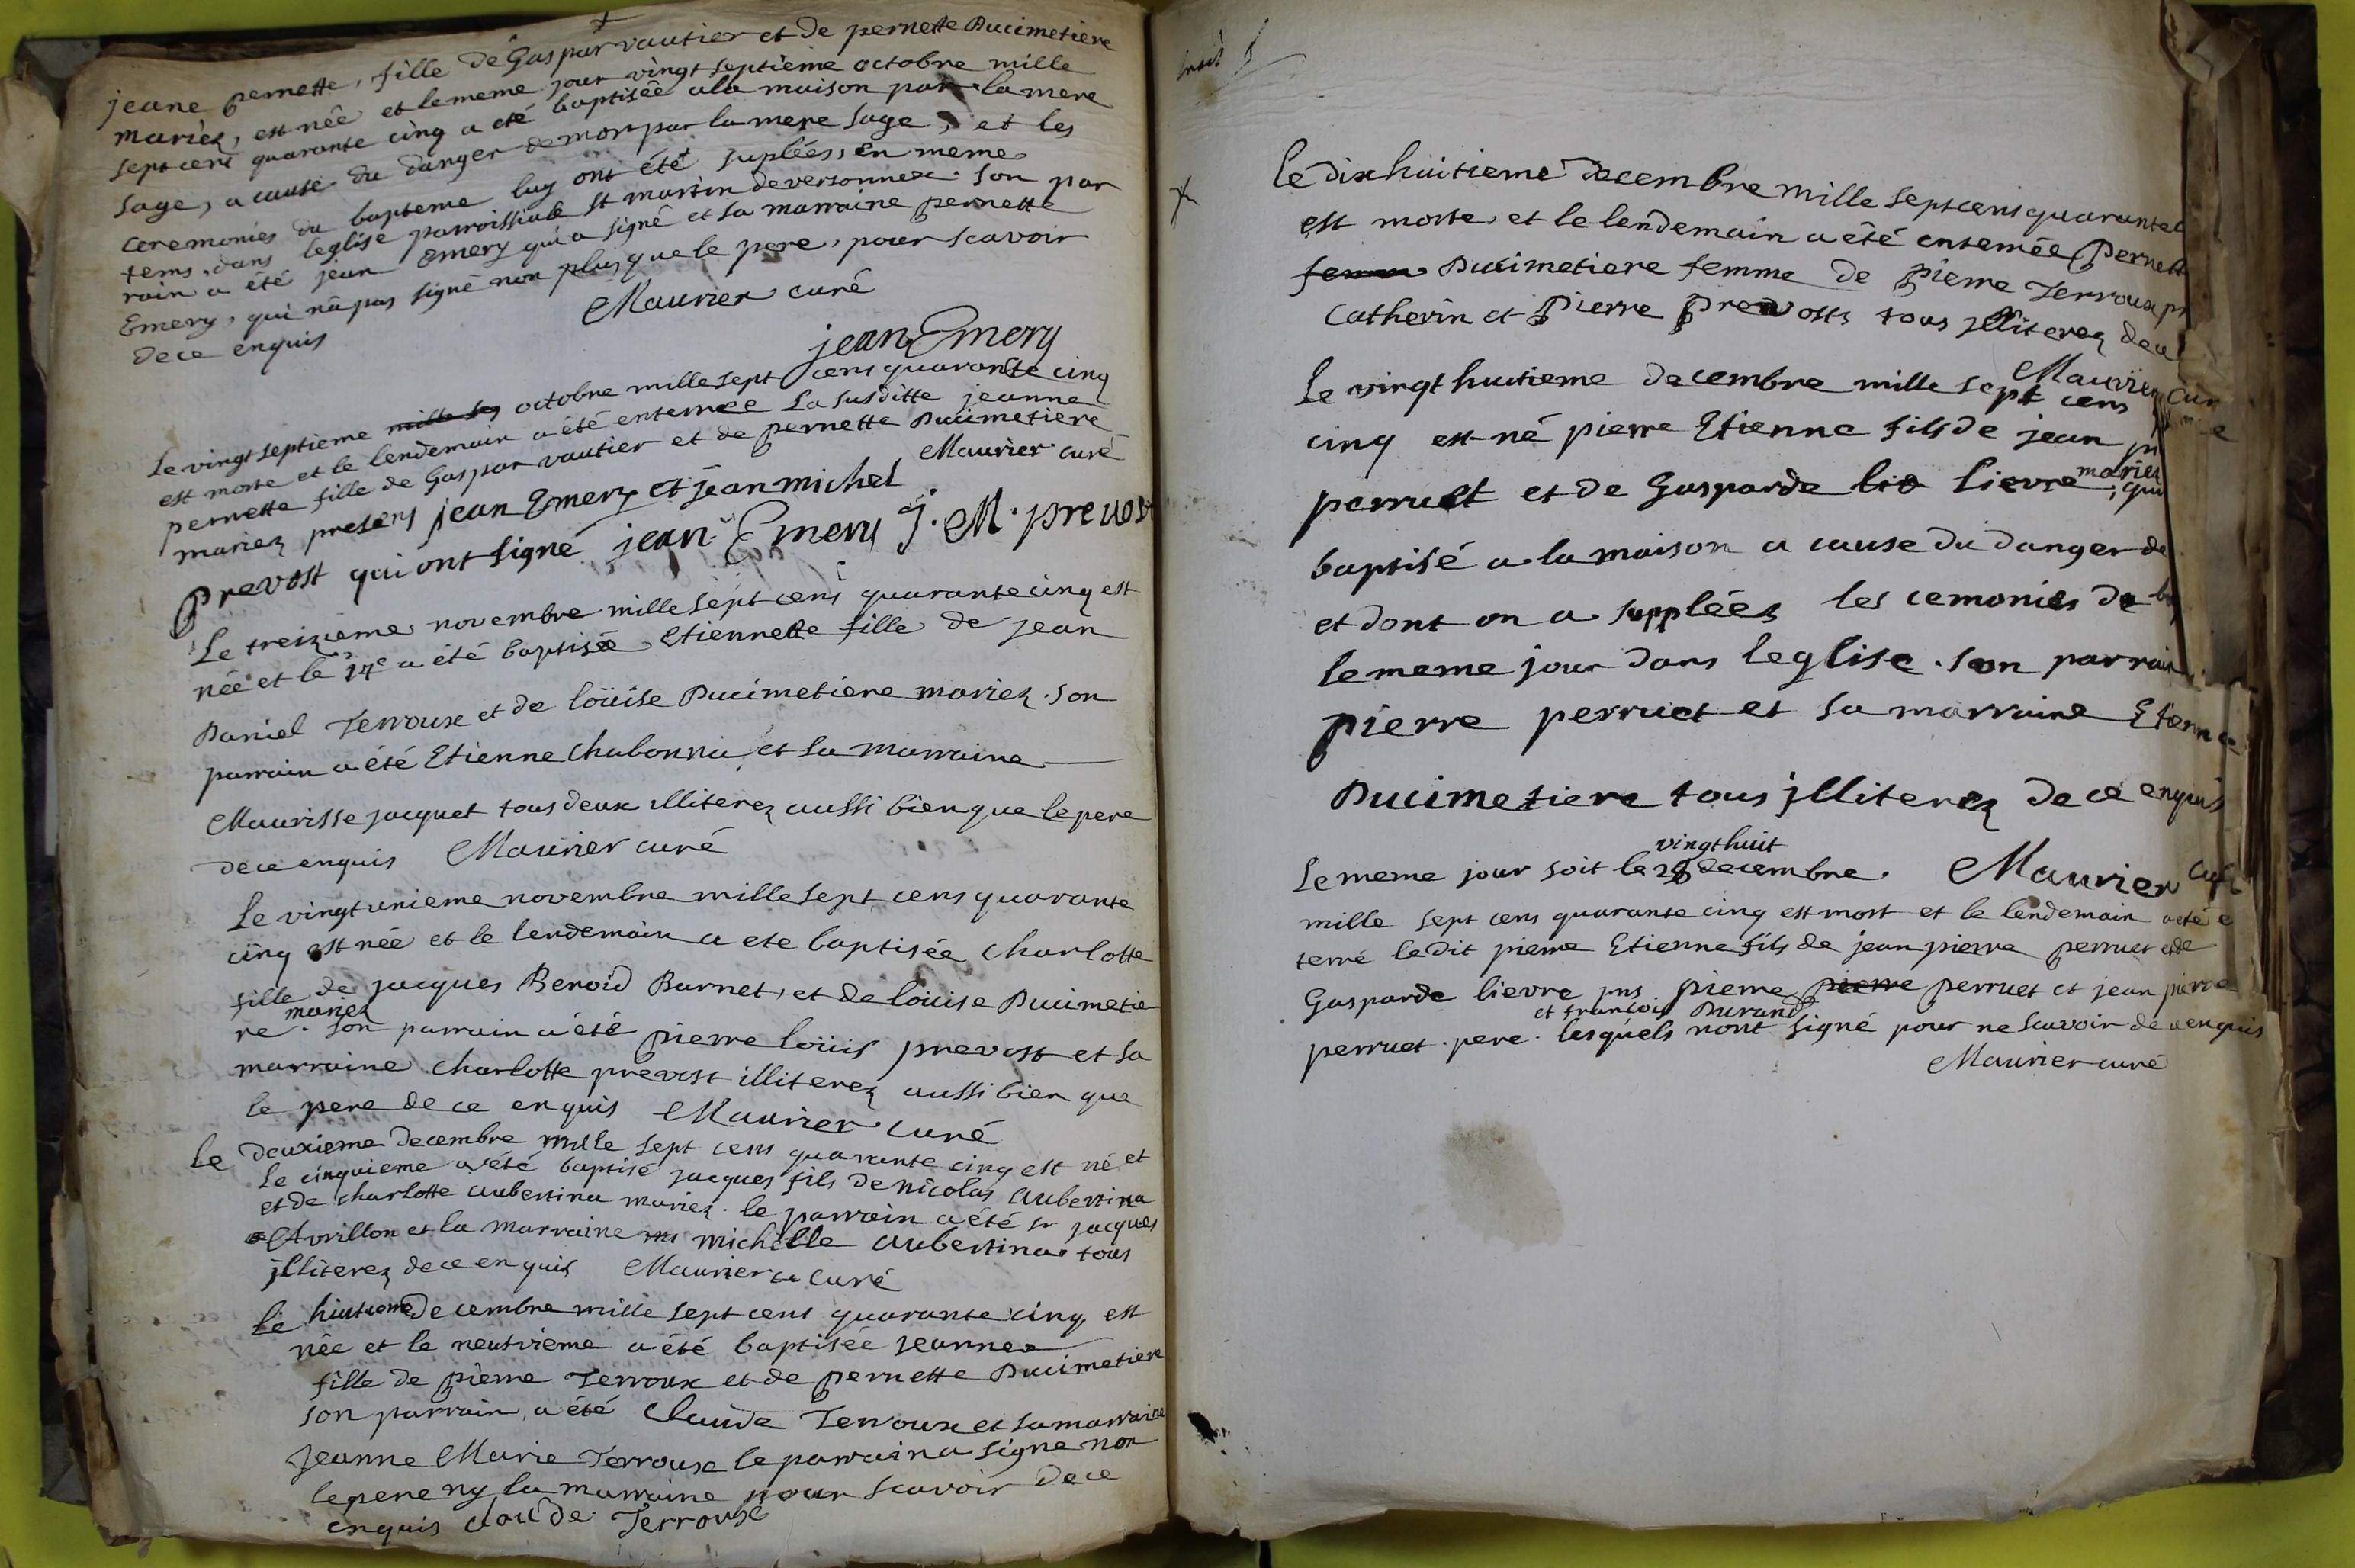 jeane pernette, fille de Gaspar vautier et de pernette Ducimetiere
mariez, est née et le meme jour vingt septieme octobre mille
sept cens quarante cinq a eté baptisée a la maison par la mere
sage, a cause du danger de mort par la mere sage, et les
ceremonies du bapteme luy ont été suplées, en meme
tems, dans leglise parroissiale St martin de versonnex. son par
rain a été jean Emery qui a signé et sa marraine pernette
Emery, qui n'a pas signé non plus que le pere, pour scavoir
de ce enquis
Maurier curé
jean Emery
Le vingt septieme octobre mille sept cens quarante cinq
est morte et le lendemain a été enterrée La susditte jeanne
pernette fille de Gaspar vautier et de pernette Ducimetiere
mariez presens jean Emery et jean michel
Maurier curé
prevost qui ont signé jean Emery J. M. prevost
Le treizieme novembre mille sept cens quarante cinq est
née et le 14e a été baptisée Etiennette fille de jean
Daniel Terroux et de loüise Ducimetiere mariez. son
parrain a été Etienne Chabonnu, et sa marraine
Maurisse jacquet tous deux illiterez aussi bien que le pere
de ce enquis Maurier curé
Le vingt unieme novembre mille sept cens quarante
cinq est née et le lendemain a ete baptisée charlotte
fille de jacques Benoid Burnet, et de loüise Ducimetie
mariez
re. son parrain a été pierre loüis prevost et sa
marraine charlotte prevost illiterez aussi bien que
le pere de ce enquis Maurier curé
Le deuxieme decembre mille sept cens quarante cinq est né et
Le cinquieme a été baptisé jacques fils de nicolas Aubertina
et de charlotte aubertina mariez. le parrain a été sr jacques
Avrillon et la marraine michelle aubertina tous
jlliterez de ce enquis Maurier curé
le huitieme decembre mille sept cens quarante cinq est
née et le neufvieme a été baptisée jeanne
fille de pierre Terroux et de pernette Ducimetiere
son parrain a été Claude Terroux et sa marraine
Jeanne Marie Terroux le parrain a signé non
le pere ny la marraine pour scavoir de ce
enquis claude Terroux
le dixhuitieme decembre mille sept cens quarante
est morte, et le lendemain a été enterrée Pernett
Ducimetiere femme de Pierre Terroux
Catherin et Pierre Prevosts tous jlliterez de ce
Maurier cur
Le vingt huitieme decembre mille sept cens
cinq est né pierre Etienne fils de jean pi
mariez
perruet et de Gasparde lievre, qui
baptisé a la maison a cause du danger de
et dont on a supplées les cemonies de
le meme jour dans leglise. son parrain
pierre perruet et sa marraine Etienne
Ducimetiere tous jlliterez de ce enquis
vingt huit
Le meme jour soit le 28 decembre. Maurier curé
mille sept cens quarante cinq est mort et le lendemain a eté e
terré le dit pierre Etienne fils de jean pierre perruet et de
Gasparde lievre pns pierre pierre perruet et jean pierre
et francois Durand
perruet. pere. lesquels n'ont signé pour ne scavoir de ce enquis
Maurier curé